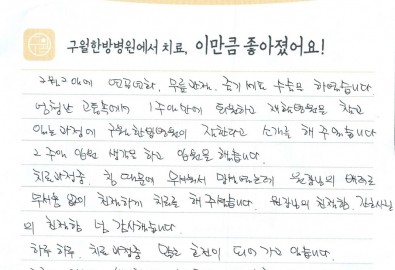 구월한방병원에서 치료, 이만큼 좋아졌어요!
연골연화, 무릎 수술을 하였습니다
엄청난 고통속에서 1주일만에 퇴원하고 재활병원을 찾고
있는 과정에 구월한방병원이 잘한다고 소개를 해 주었습니다
2주일 입원 생각을 하고 입원을 했습니다.
치료과정중, 침 때문에 무서워서 원장님의 배려로
무서움 없이 친절하게 치료를 해 주셨습니다. 원장님의 친절함, 간호사님
의 친절함 넘 감사했습니다.
하루 하루, 치료 과정중 많은 호전이 되어 가고 있습니다.